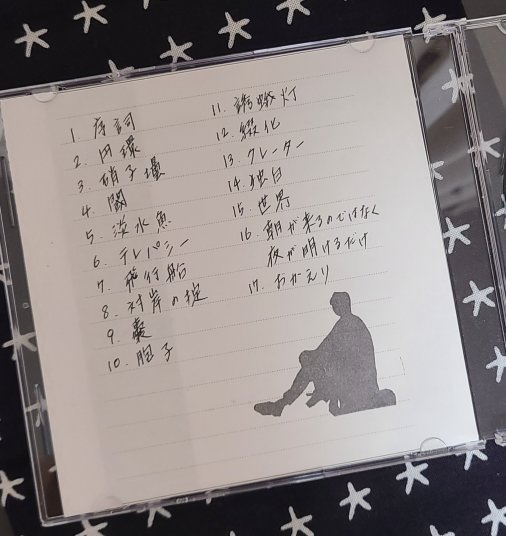 1 序詞
2. 円環
3. 硝子壜
4. 閾
5 淡水魚
6. テレパシー
7. 飛行船
8. 対岸の掟
9.
10. 胞子
11. 誘蛾灯
12. 綴化
13. クレーター
14. 独白
15. 世界
16. 朝が来るのではなく
夜が明けるだけ
17. おかえり